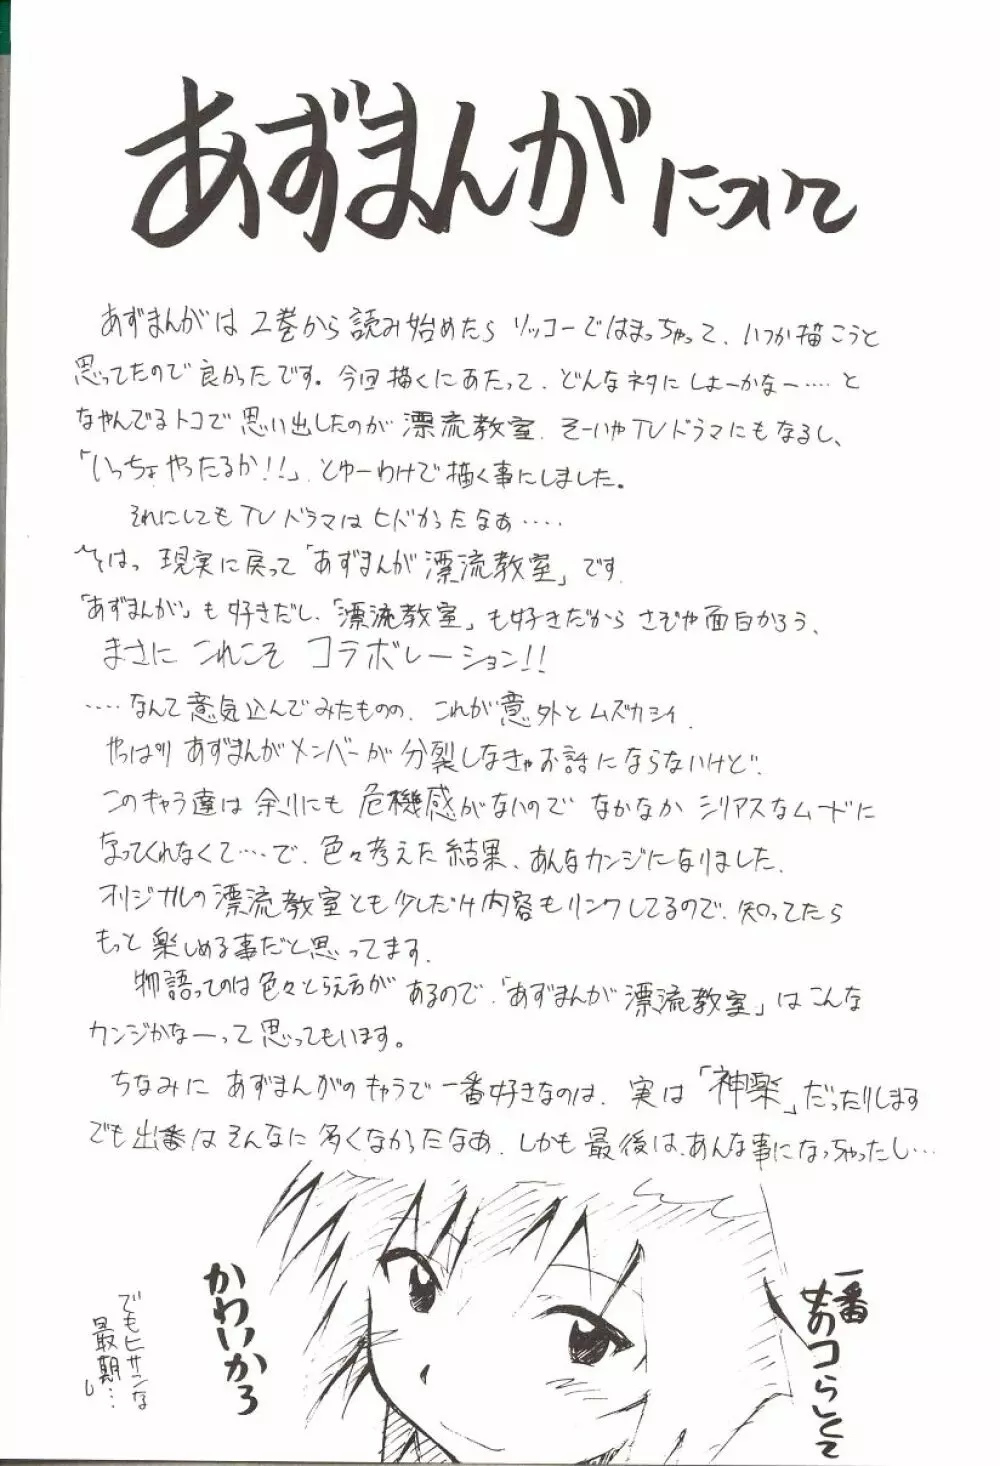 あずまんがについて
あずまんがは2巻から読み始めたら リッコーではまっちゃって、いつか描こうと
思ってたので良かったです。今回描くにあたって、どんなネタにしよーかなー‥‥と
なやんでるトコで思い出したのが漂流教室、そーいやTVドラマにもなるし、
「いっちょやったるか!!」とゆーわけで描く事にしました。
それにしてもTVドラマはヒドかったなぁ‥‥
現実に戻って「あずまんが漂流教室」です
「あずまんが」も好きだし、「漂流教室」も好きだから さぞや面白かろう、
まさに これこそ コラボレーション!!
‥‥なんて意気込んでみたものの、これが意外とムズカシイ、
やっぱりあずまんがメンバーが分裂しなきゃお話にならないけど、
このキャラ達は余りにも危機感がないので なかなか シリアスなムードに
なってくれなくて‥‥で、色々考えた結果、あんなカンジになりました、
オリジナルの漂流教室とも少しだけ内容もリンクしてるので、知ってたら
もっと楽しめる事だと思ってます。
物語ってのは色々とらえ方が あるので、「あずまんが漂流教室」はこんな
カンジかなーって思ってもいます。
ちなみに あずまんがのキャラで一番好きなのは、実は「神楽」だったりします
でも出番はそんなに多くなかったなぁ、しかも最後は、あんな事になっちゃったし‥‥
一番
オコらしくて
かわいかろ
でもヒサンな
最期‥‥